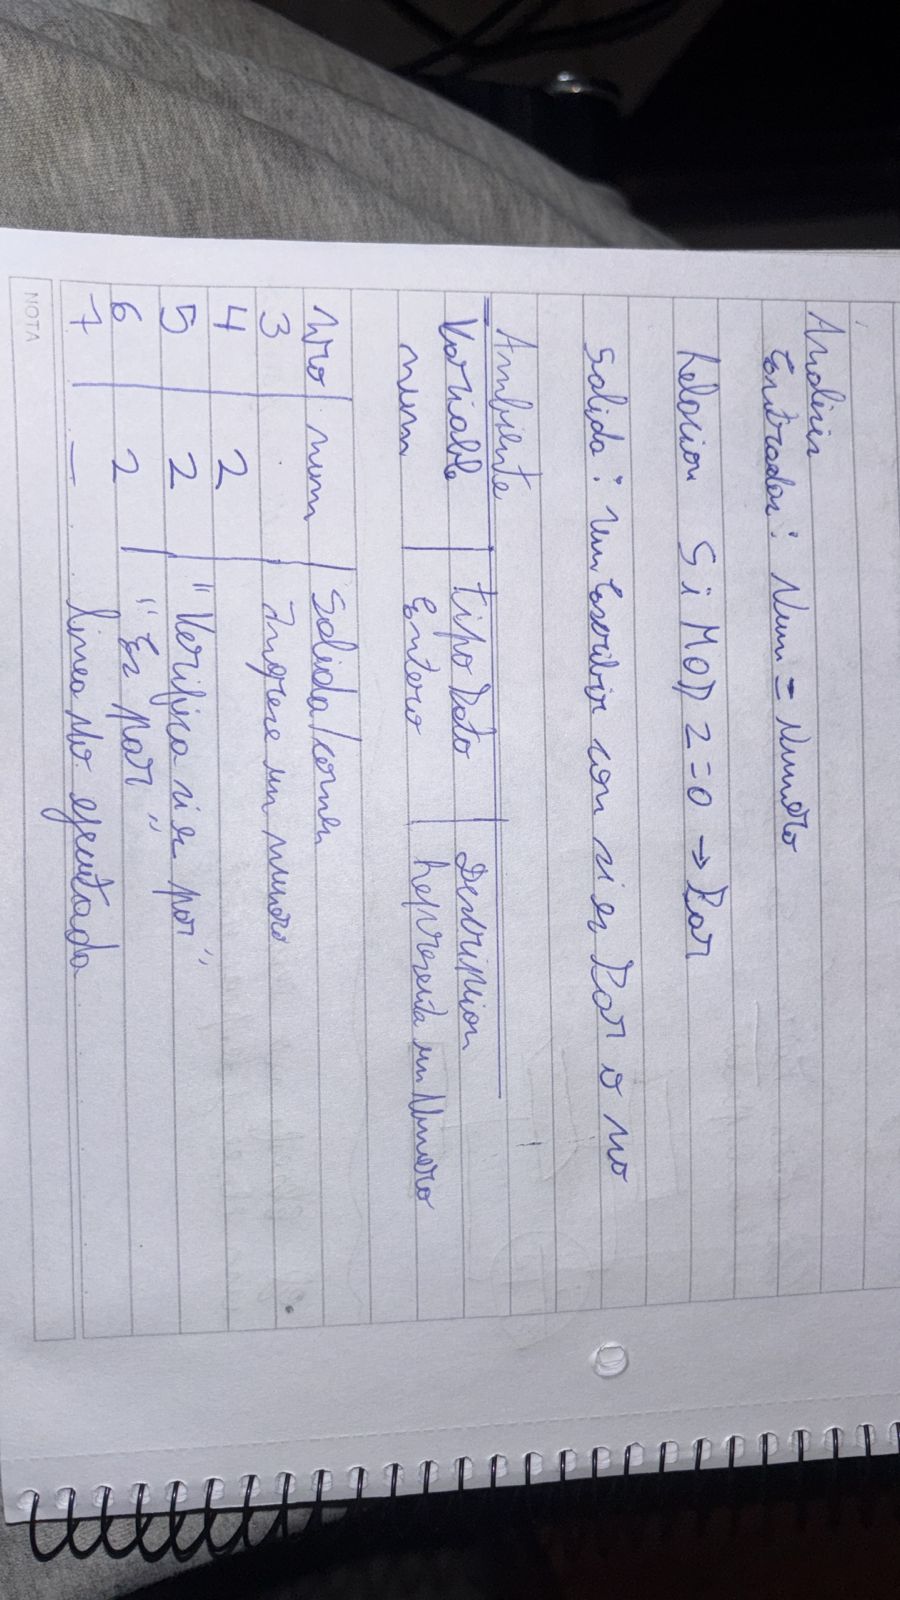 Analisis
Entradas: Num = Numero
Relacion Si MOD 2=0 → Par
Salida: Un Escribir con si es Par o no
Ambiente
Variable | tipo Dato | Descripcion
num | Entero | Representa un Numero
Nro | num | Salida/comen
3 Ingrese un numero
4 2
5 2 "Verifica si es par"
6 2 "Es par"
7 — linea No ejecutada
NOTA